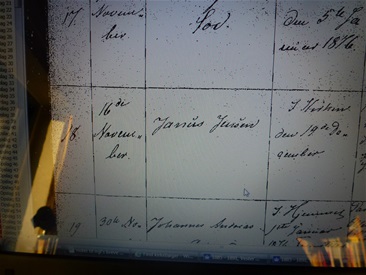 17.
Novem=
ber.
Søn.
den 5te Ja
nuar 1876.
18.
16de
Novem=
ber.
Janus Jensen
I Kirken
den 19de De=
cember
19
30te No=
Johannes Andreas
I Hjemmet
1ste Januar